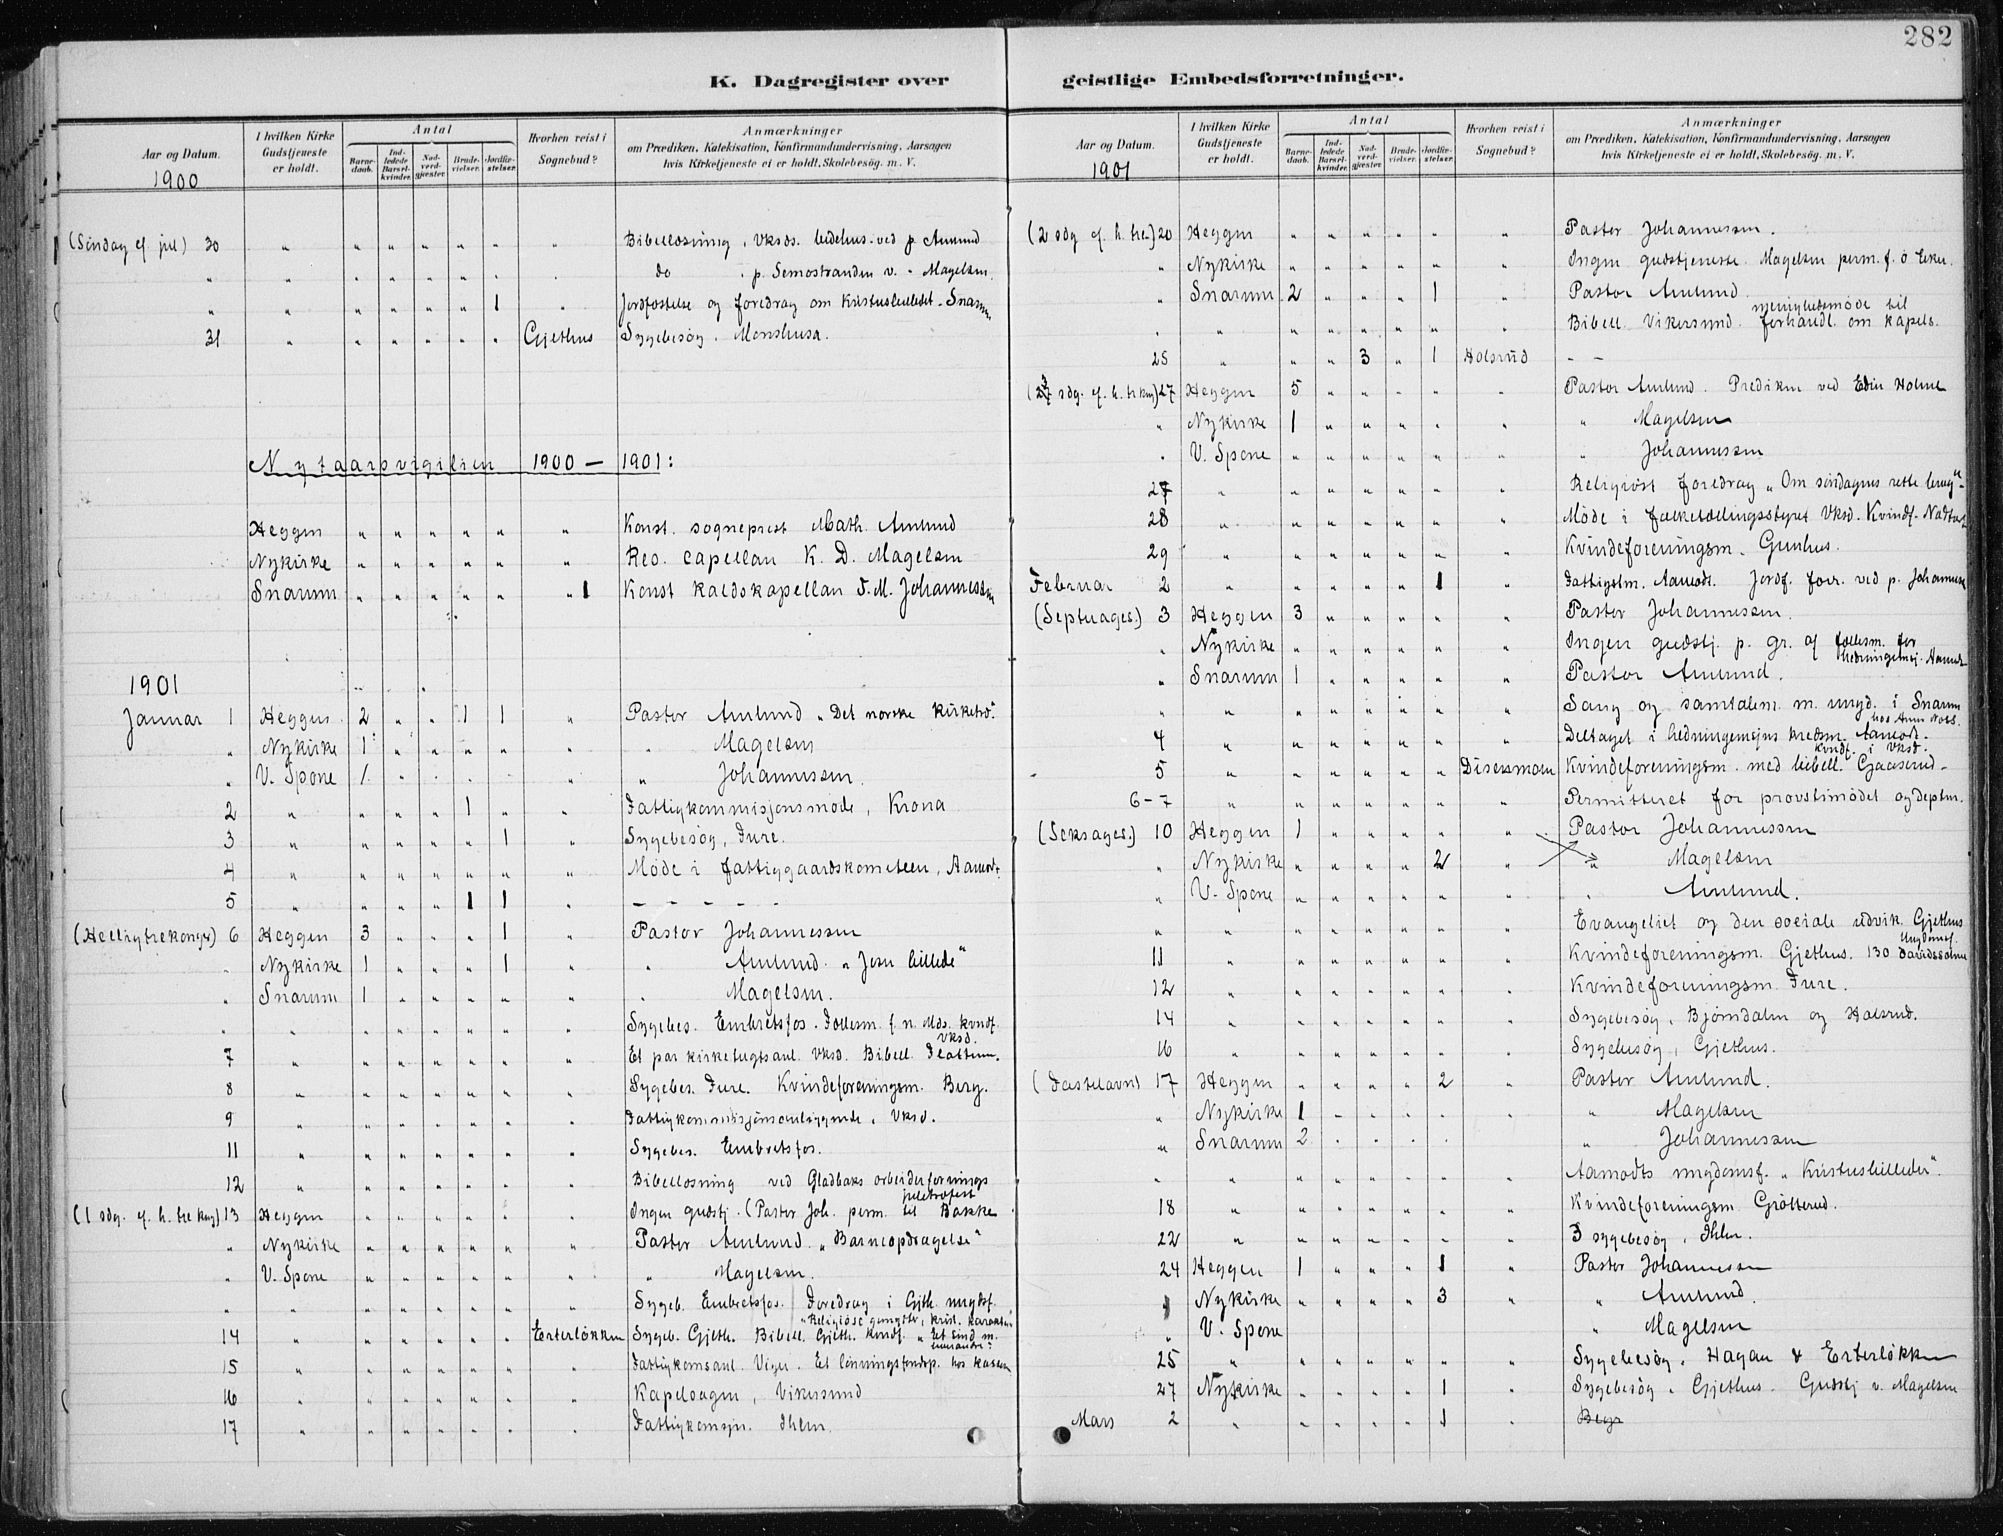 282
K. Dagregister over geistlige Embedsforretninger.
Aar og Datum.
1900
I hvilken Kirke Gudstjeneste er holdt.
Antal
Barnedaab.
Indledede Barselkvinder.
Nadverdgjæster
Brudevielser.
Jordfæstelser.
Hvorhen reist i Sognebud?
Anmærkninger
om Prædiken, Katekisation, Konfirmandundervisning, Aarsagen
hvis Kirketjeneste ei er holdt, Skolebesøg. m. V.
(Søndag ef jul) 30 " " " " " " " Bibellæsning, Vksds. bedehus ved p. Amlund
" " " " " " " do. p. Semostranden v. - Magelsen.
" " " " " " 1 " Jordfæstelse og foredrag om Kristusbilledet - Snarum
31 " " " " " " Gjethus Sygebesøg. Monshusa.
Nytaarsvigilien 1900 - 1901:
Heggen " " " " " " Konst. sogneprest Math. Amlund
Nykirke " " " " " " Res. capellan K. D. Magelsen
Snarum " " " " " " 1 Konst kaldskapellan T. M. Johannessen
1901
Januar 1 Heggen 2 " " 1 1 " Pastor Amlund „Det norske kirketre"
" Nykirke 1 " " " " " " Magelsen
" V. Spone 1 " " " " " " Johannessen.
2 " " " " 1 " " Fattigkommisjonsmøde, Krona
3 " " " " " 1 " Sygebesøg, Fure.
4 " " " " " " " Møde i fattiggaardskomiteen, Aamodt
5 " " " " 1 1 " - - - - -
(Helligtrekonger) 6 Heggen 3 " " " 1 " Pastor Johannessen
" Nykirke 1 " " " 1 " " Amlund. „Jesu billede"
" Snarum 1 " " " " " " Magelsen.
" " " " " " " " Sygebes. Embretsfos. Fællesm. f. n. Mds. kvndf. Vksd.
7 " " " " " " " Et par kirketugtsanl. Vksd. Bibell. Flattum.
8 " " " " " " " Sygebes. Fure. Kvindeforeningsm. Berg.
9 " " " " " " " Fattigkommissjonsanliggende, Vksd.
11 " " " " " " " Sygebes. Embretsfos.
12 " " " " " " " Bibellæsning ved Gladbaks arbeiderforenings juletræfest
(1 sdg. ef. h. tre kng) 13 Heggen " " " " " " Ingen gudstj. (Pastor Joh. perm. til Bakke
" Nykirke " " " " " " Pastor Amlund. „Barneopdragelse"
" V. Spone " " " " " " " Magelsen.
" " " " " " " " Sygeb. Embretsfos. Foredrag i Gjth. ungdf.
14 " " " " " " Enterløkken Sygeb. Gjeth. Bibell. Gjeth. kvndf. „Et sind m.
15 " " " " " " " Fattigkomsanl. Viger.
16 " " " " " " " Kapelsagen, Vikersund
17 " " " " " " " Fattigkomsjn. Ihlen.
Aar og Datum.
1901
I hvilken Kirke Gudstjeneste er holdt.
Antal
Barnedaab.
Indledede Barselkvinder.
Nadverdgjæster
Brudevielser.
Jordfæstelser.
Hvorhen reist i Sognebud?
Anmærkninger
om Prædiken, Katekisation, Konfirmandundervisning, Aarsagen
hvis Kirketjeneste ei er holdt, Skolebesøg. m. V.
(2 sdg ef. h. tre) 20 Heggen " " " " " " Pastor Johannessen.
" Nykirke " " " " " " Ingen gudstjeneste. Magelsen perm. f. ø Eker.
" Snarum 2 " " " 1 " Pastor Amlund.
" " " " " " " " Bibell. Vikersund. menighedsmøde til forhandl. om kapels.
25 " " " 3 " 1 Holsrud - -
(3 sdg. ef. h. tre kng) 27 Heggen 5 " " " " " Pastor Amlund. Prediken ved Edin Holme
" Nykirke 1 " " " " " " Magelsen
" V. Spone " " " " " " " Johannessen
27 " " " " " " " Religiøst foredrag „Om søndagens rette brug"
28 " " " " " " " Møde i folketællingsstyret Vksd. Kvindf.
29 " " " " " " " Kvindeforeningsm. Gunhus.
Februar 2 " " " " " 1 " Fattigstm. Aamodt. Jordf. forr. ved p. Johannessen
(Septuages.) 3 Heggen 3 " " " " " Pastor Johannessen.
" Nykirke " " " " " " Ingen gudstj. p. gr. af fællesm. for hedningemsj. Aamodt
" Snarum 1 " " " " " Pastor Amlund.
" " " " " " " " Sang og samtalem. m. ungd. i Snarum
4 " " " " " " " Deltaget i hedningemsjns kredsm. Aamodt.
5 " " " " " " Disensmoen Kvindeforeningsm. med bibell. Gaaserud - kvndf. i Vksd.
6-7 " " " " " " " Permitteret for provstimødet og deptm.
(Seksages.) 10 Heggen 1 " " " " " Pastor Johannessen
" Nykirke " " " " 2 " " Magelsen
" V. Spone " " " " " " " Amlund.
" " " " " " " " Evangeliet og den sociale udvik. Gjethus Ungdomsf.
11 " " " " " " " Kvindeforeningsm. Gjethus. 130 Davidssalme
12 " " " " " " " Kvindeforeningsm. Fure.
14 " " " " " " " Sygebesøg, Bjørndalen og Holsrud.
16 " " " " " " " Sygebesøg, Gjethus.
(Fastelavn) 17 Heggen " " " " 2 " Pastor Amlund.
" Nykirke 1 " " " " " " Magelsen
" Snarum 2 " " " " " Johannessen
" " " " " " " " Aamodts ungdomsf. „Kristusbilleder".
18 " " " " " " " Kvindeforeningsm. Grötterud.
22 " " " " " " " 3 sygebesøg, Ihlen.
24 Heggen 1 " " " 1 " Pastor Johannessen
" Nykirke " " " " 3 " " Amlund.
" V. Spone " Magelsen
25 " " " " " " " Sygebesøg. Hagan & Enterløkken
27 Nykirke " " " " 1 " Sygebesøg, Gjethus. Gudstj v. Magelsen
Mars 2 " " " " " 1 " Begr